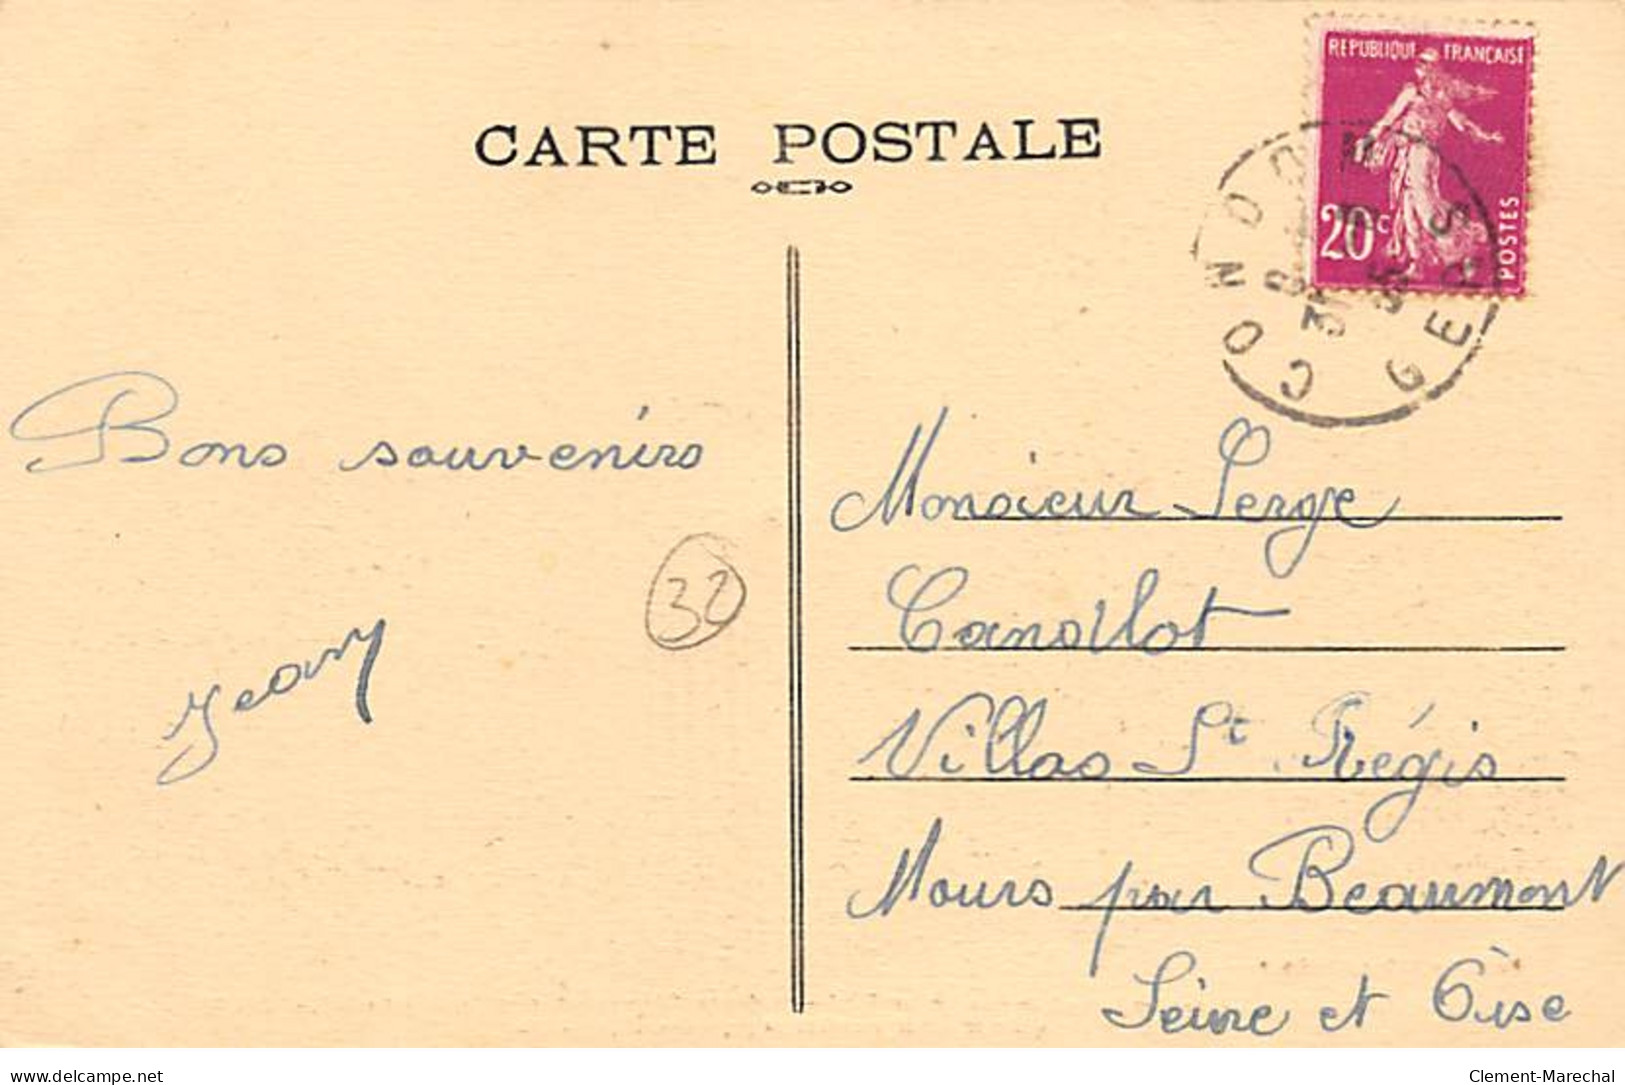 CARTE POSTALE
REPUBLIQUE FRANÇAISE
20c
POSTES
CONDOM
GERS
Bons souvenirs
Jean
32
Monsieur Serge
Canallot
Villas St Régis
Mours par Beaumont
Seine et Oise
delcampe.net
Clement-Marechal